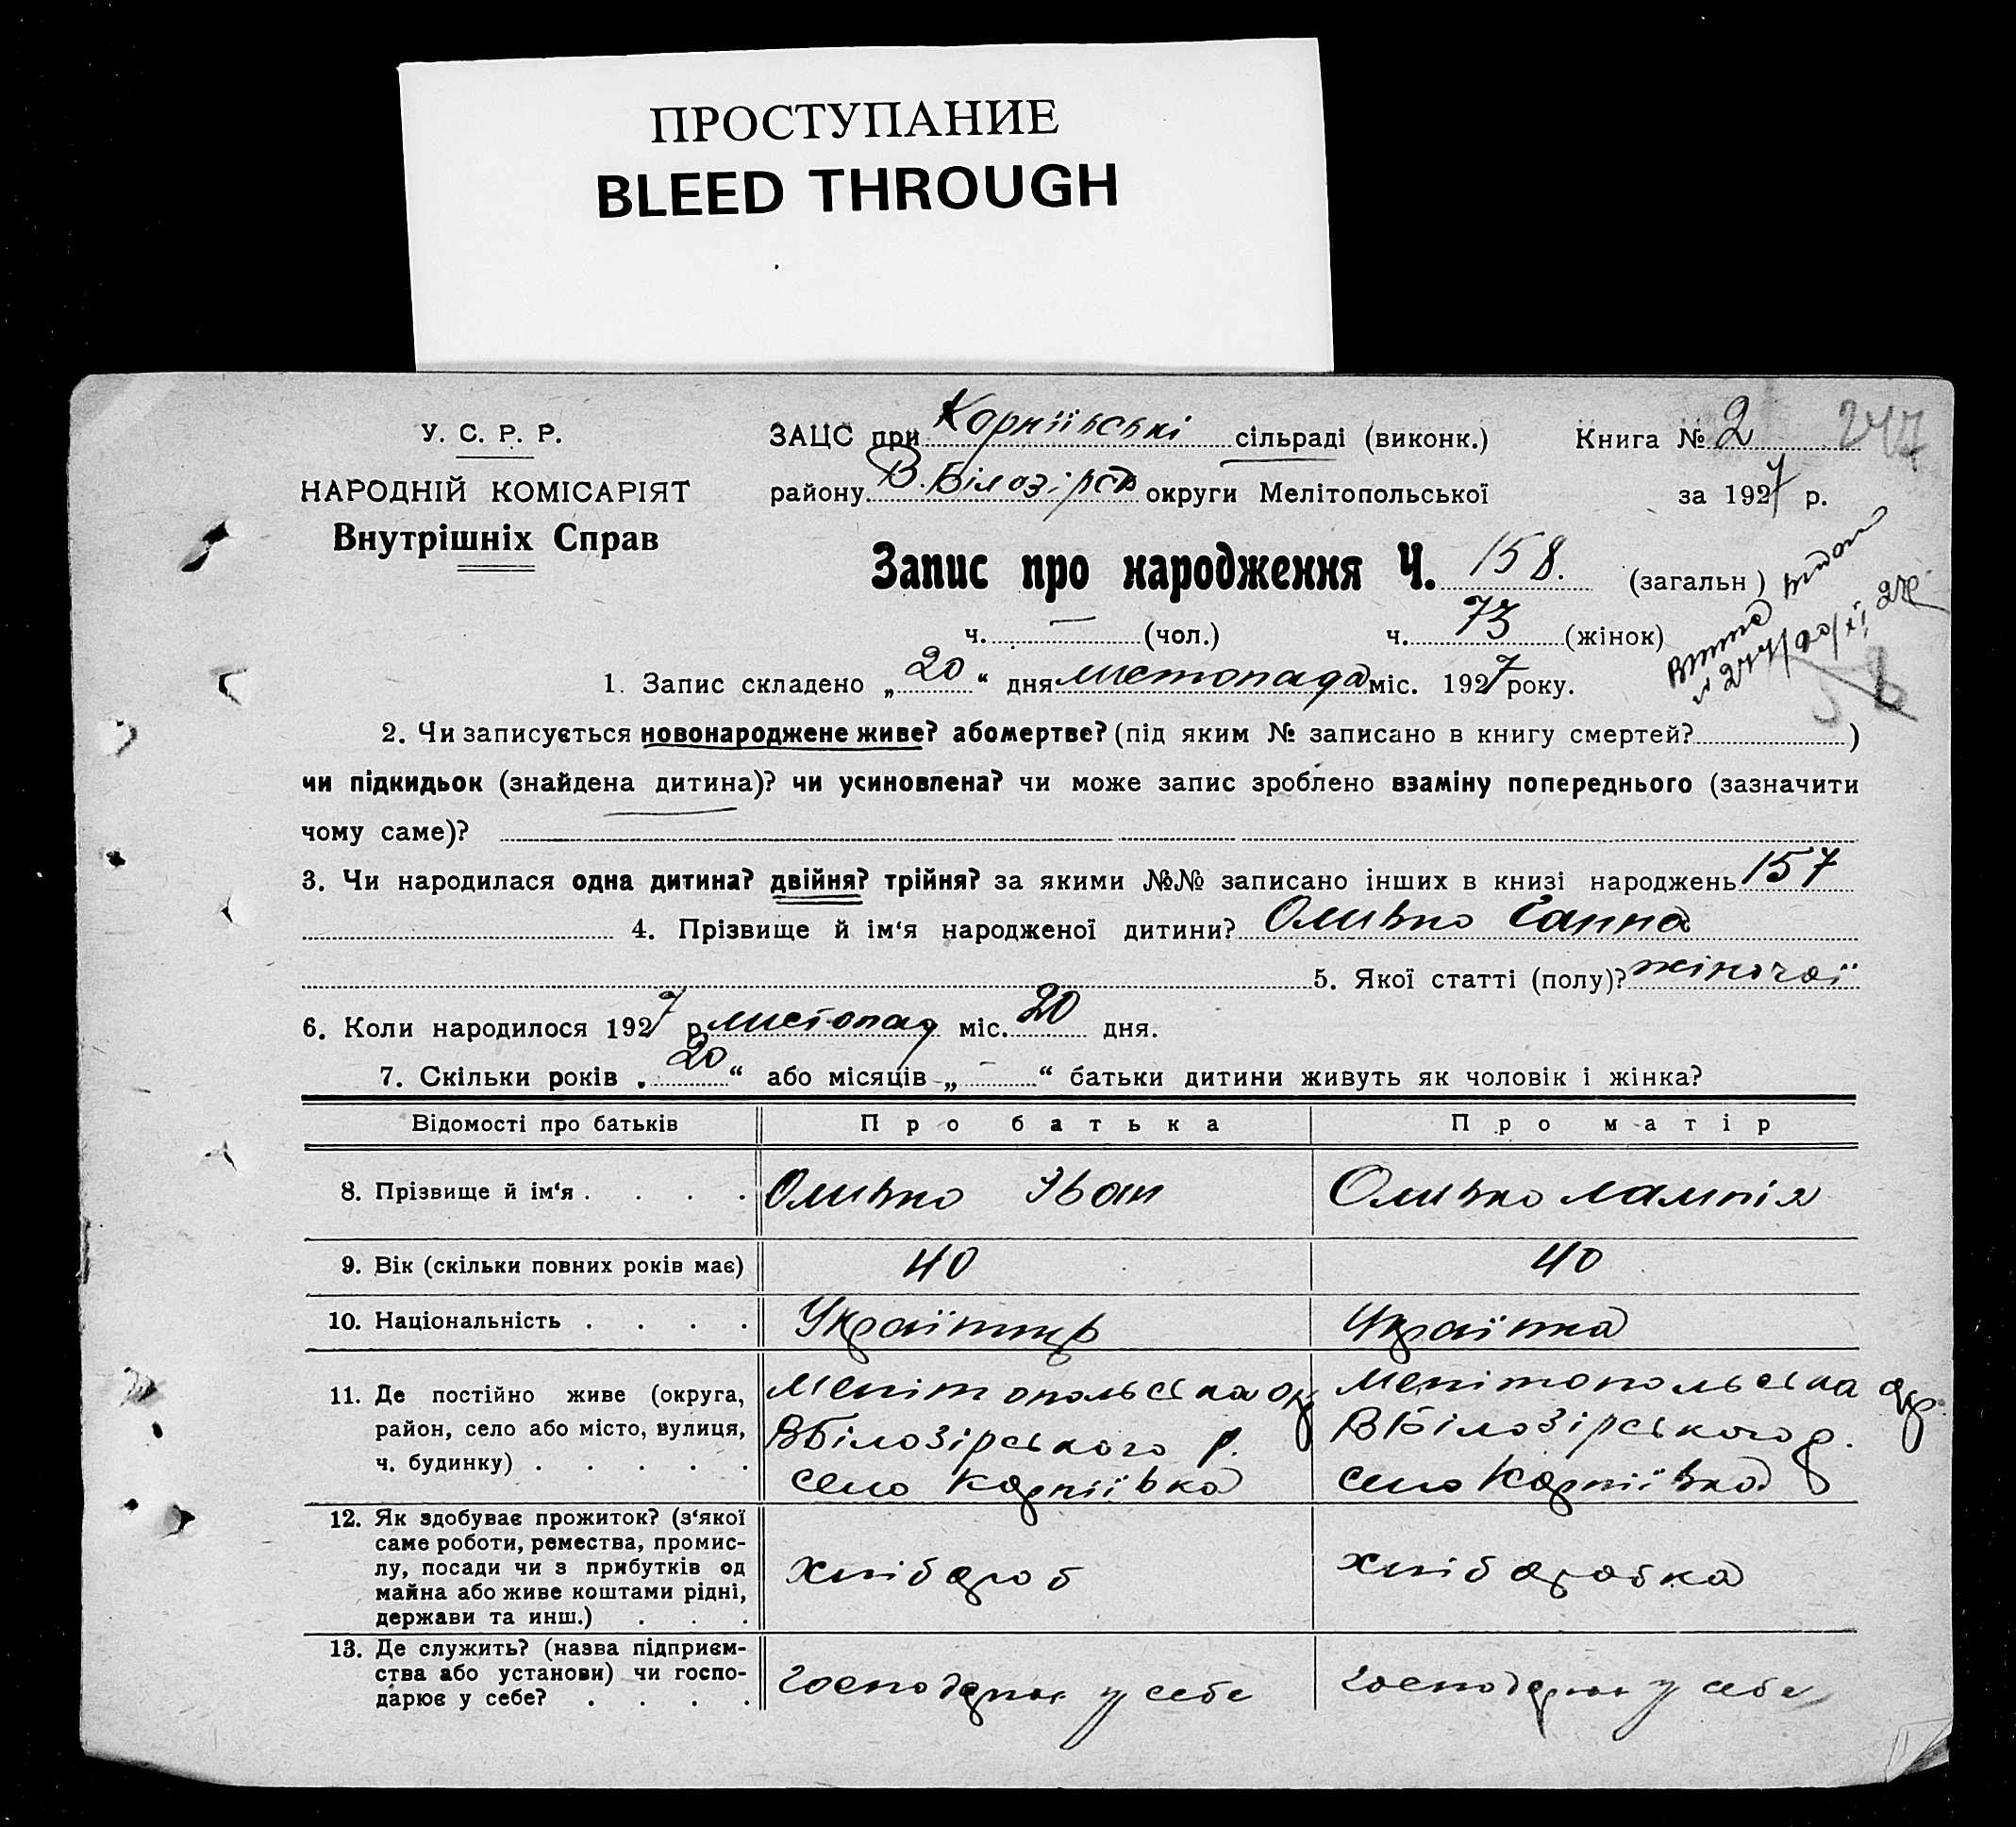 ПРОСТУПАНИЕ
BLEED THROUGH
У. С. Р. Р.
НАРОДНІЙ КОМІСАРІЯТ
Внутрішніх Справ
ЗАЦС при Корніївські сільраді (виконк.) Книга № 2 247
району В. Білозірськ округи Мелітопольської за 1927 р.
Запис про народження Ч. 158. (загальн )
ч. — (чол.) ч. 73 (жінок)
1. Запис складено „ 20 “ дня листопада міс. 1927 року.
2. Чи записується новонароджене живе? або мертве? (під яким № записано в книгу смертей? )
чи підкидьок (знайдена дитина)? чи усиновлена? чи може запис зроблено взаміну попереднього (зазначити
чому саме)?
3. Чи народилася одна дитина? двійня? трійня? за якими №№ записано інших в книзі народжень 157
4. Прізвище й ім‘я народженої дитини? Оливко Ганна
5. Якої статті (полу)? жіночої
6. Коли народилося 1927 р. листопад міс. 20 дня.
7. Скільки років „ 20 “ або місяців „ — “ батьки дитини живуть як чоловік і жінка?
Відомості про батьків Про батька Про матір
8. Прізвище й ім‘я . . . . Оливко Іван Оливко Лампія
9. Вік (скільки повних років має) 40 40
10. Національність . . . . Українець Українка
11. Де постійно живе (округа, Мелітопольська окр Мелітопольська окр.
район, село або місто, вулиця, ВБілозірського р. ВБілозірського р.
ч. будинку) . . . . . село Корніївка село Корніївка
12. Як здобуває прожиток? (з‘якої
саме роботи, ремества, промис-
лу, посади чи з прибутків од хлібороб хліборобка
майна або живе коштами рідні,
держави та инш.) . . .
13. Де служить? (назва підприєм-
ства або установи) чи госпо- господарює у себе господарює у себе
дарює у себе? . . . .